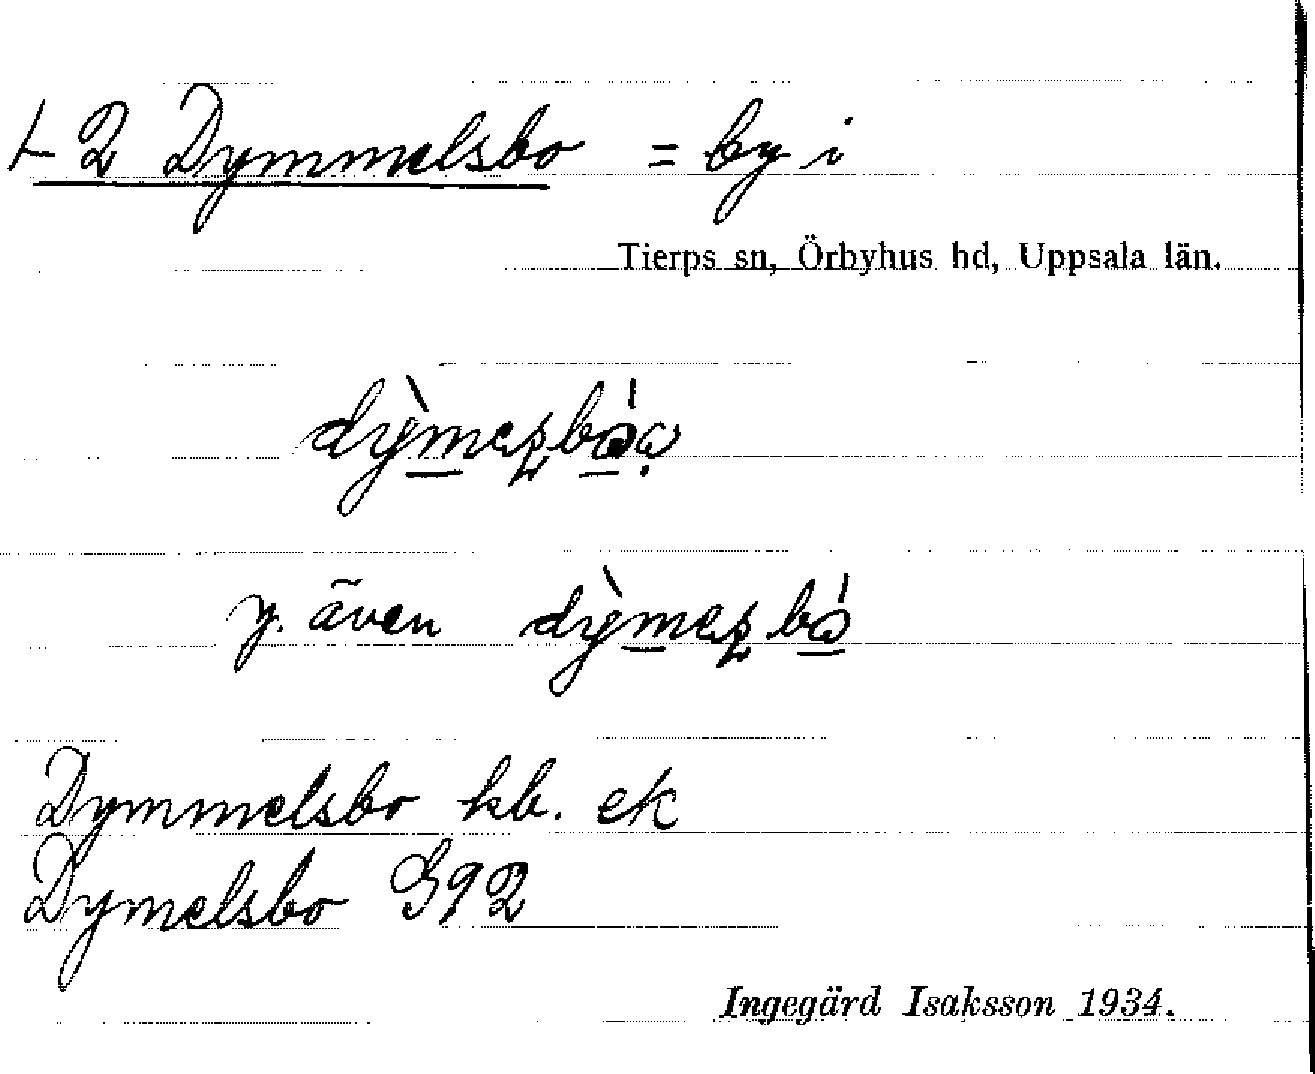 1-2 Dymmelsbo = by i
Tierps sn, Örbyhus hd, Uppsala län.
y. även
Dymmelsbo kb. ek
Dymelsbo S92
Ingegärd Isaksson 1934.